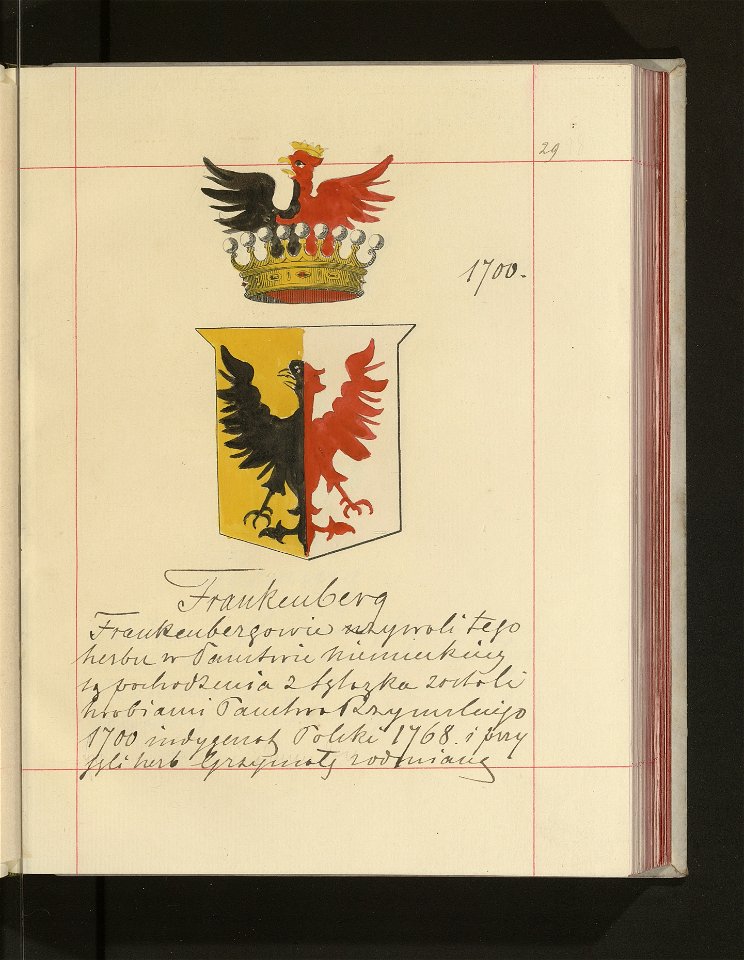 29
1700.
Frankenberg
Frankenbergowie używali tego
herbu w Państwie niemieckiey
są pochodzenia z Szlązka zostali
hrabiami Państwa Rzymskiego
1700 indygenat Polski 1768. i przy
jęli herb Grzymałę rodmianą